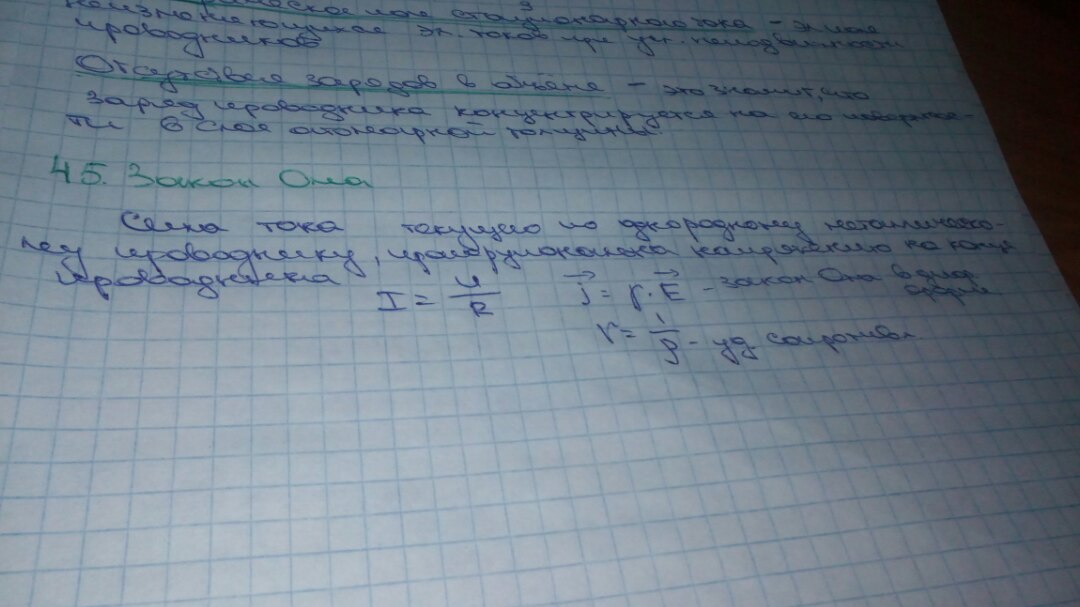 поле стационарного тока – эл. поле
неизменяющихся эл. токов при усл. неподвижности
проводников
Отсутствие зарядов в объеме – это значит, что
заряд проводника концентрируется на его поверхнос-
ти в слое атомарной толщины
45. Закон Ома
Сила тока текущего по однородному металлическо-
му проводнику, пропорциональна напряжению на конц.
проводника
I = U/R j⃗ = γ·E⃗ – закон Ома в диф
форме
γ = 1/ρ – уд. сопротивл